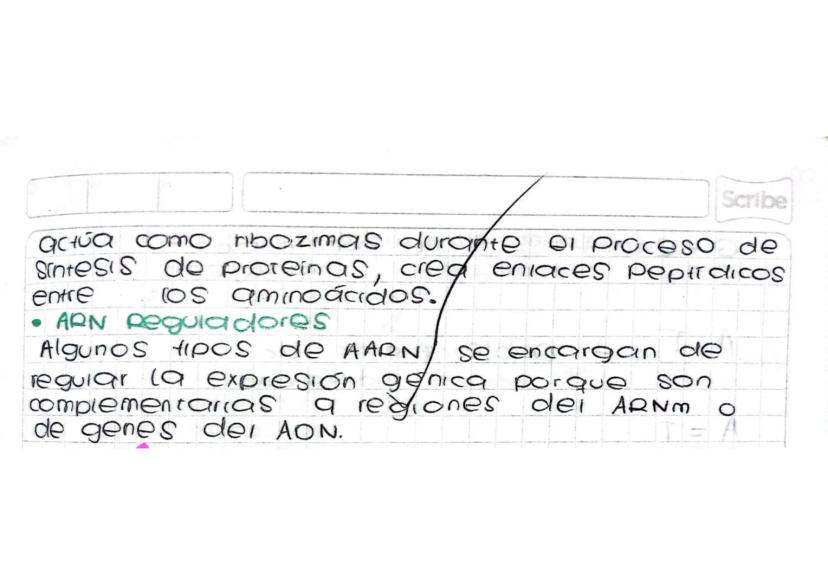 Scribe
actúa como ribozimas durante el proceso de
síntesis de proteínas, crea enlaces peptídicos
entre los aminoácidos.
• ARN Reguladores
Algunos tipos de AARN se encargan de
regular la expresión génica porque son
complementarias a regiones del ARNm o
de genes del ADN.
T = A